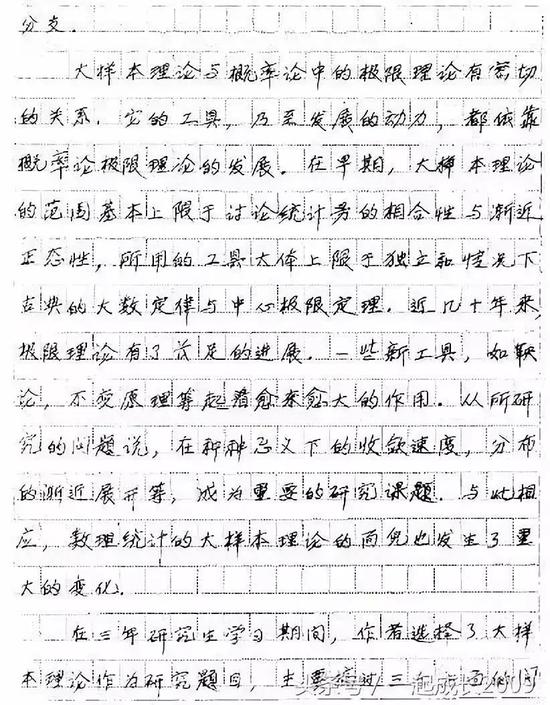 分支.
大样本理论与概率论中的极限理论有密切
的关系. 它的工具, 乃至发展的动力, 都依靠
概率论极限理论的发展. 在早期, 大样本理论
的范围基本上限于讨论统计量的相合性与渐近
正态性, 所用的工具大体上限于独立和情况下
古典的大数定律与中心极限定理. 近几十年来,
极限理论有了长足的进展. 一些新工具, 如鞅
论, 不变原理等起着愈来愈大的作用. 从所研
究的问题说, 在种种意义下的收敛速度, 分布
的渐近展开等, 成为重要的研究课题. 与此相
应, 数理统计的大样本理论的面貌也发生了重
大的变化.
在三年研究生学习期间, 作者选择了大样
本理论作为研究题目, 主要
头条号 / 一起成长2009